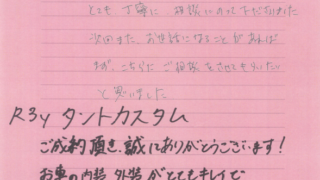 とても丁寧に相談にのって下だいました
次回また、お世話になることがあれば
まず、こちらにご相談をさせてもらいたい
と思いました
R3y タントカスタム
ご成約頂き、誠にありがとうございます!
お車の内装 外装がとてもキレイで